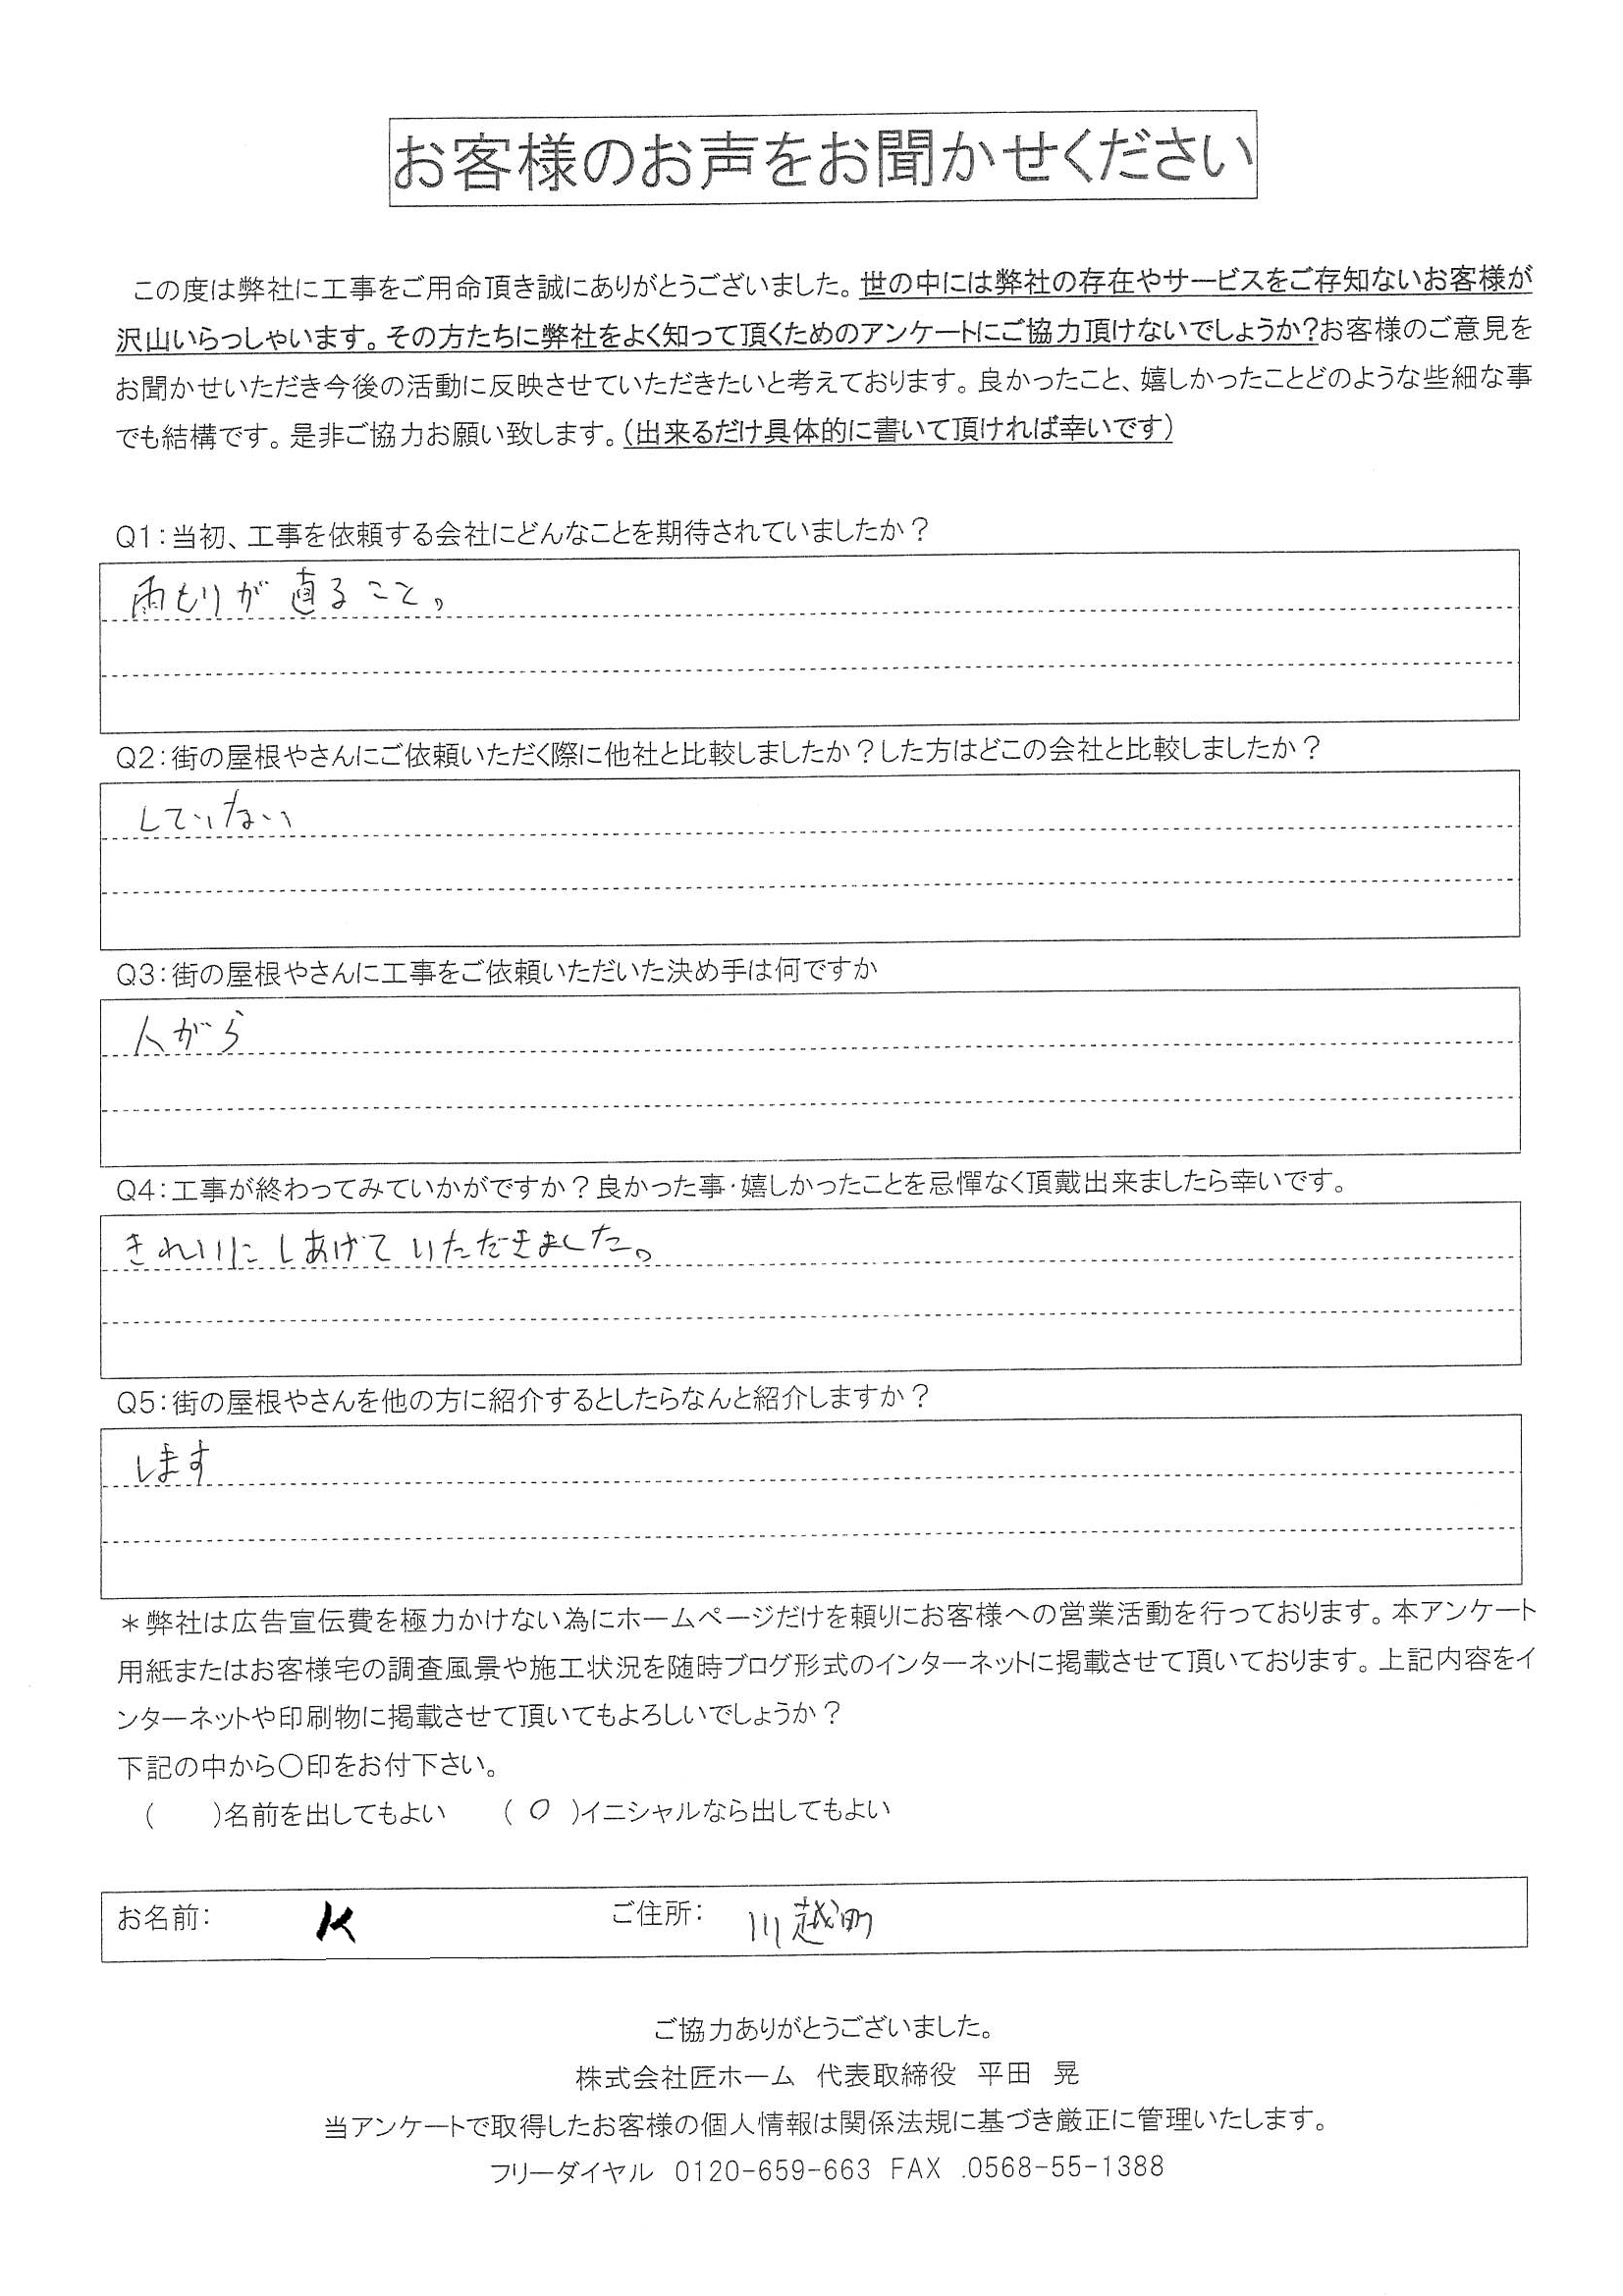 お客様のお声をお聞かせください
この度は弊社に工事をご用命頂き誠にありがとうございました。世の中には弊社の存在やサービスをご存知ないお客様が
沢山いらっしゃいます。その方たちに弊社をよく知って頂くためのアンケートにご協力頂けないでしょうか?お客様のご意見を
お聞かせいただき今後の活動に反映させていただきたいと考えております。良かったこと、嬉しかったことどのような些細な事
でも結構です。是非ご協力お願い致します。(出来るだけ具体的に書いて頂ければ幸いです)
Q1:当初、工事を依頼する会社にどんなことを期待されていましたか?
雨もりが直ること。
Q2:街の屋根やさんにご依頼いただく際に他社と比較しましたか?した方はどこの会社と比較しましたか?
していない
Q3:街の屋根やさんに工事をご依頼いただいた決め手は何ですか
人がら
Q4:工事が終わってみていかがですか?良かった事・嬉しかったことを忌憚なく頂戴出来ましたら幸いです。
きれいにしあげていただきました。
Q5:街の屋根やさんを他の方に紹介するとしたらなんと紹介しますか?
します
*弊社は広告宣伝費を極力かけない為にホームページだけを頼りにお客様への営業活動を行っております。本アンケート
用紙またはお客様宅の調査風景や施工状況を随時ブログ形式のインターネットに掲載させて頂いております。上記内容をイ
ンターネットや印刷物に掲載させて頂いてもよろしいでしょうか?
下記の中から〇印をお付下さい。
( )名前を出してもよい (○)イニシャルなら出してもよい
お名前: K ご住所: 川越町
ご協力ありがとうございました。
株式会社匠ホーム 代表取締役 平田 晃
当アンケートで取得したお客様の個人情報は関係法規に基づき厳正に管理いたします。
フリーダイヤル 0120-659-663 FAX .0568-55-1388